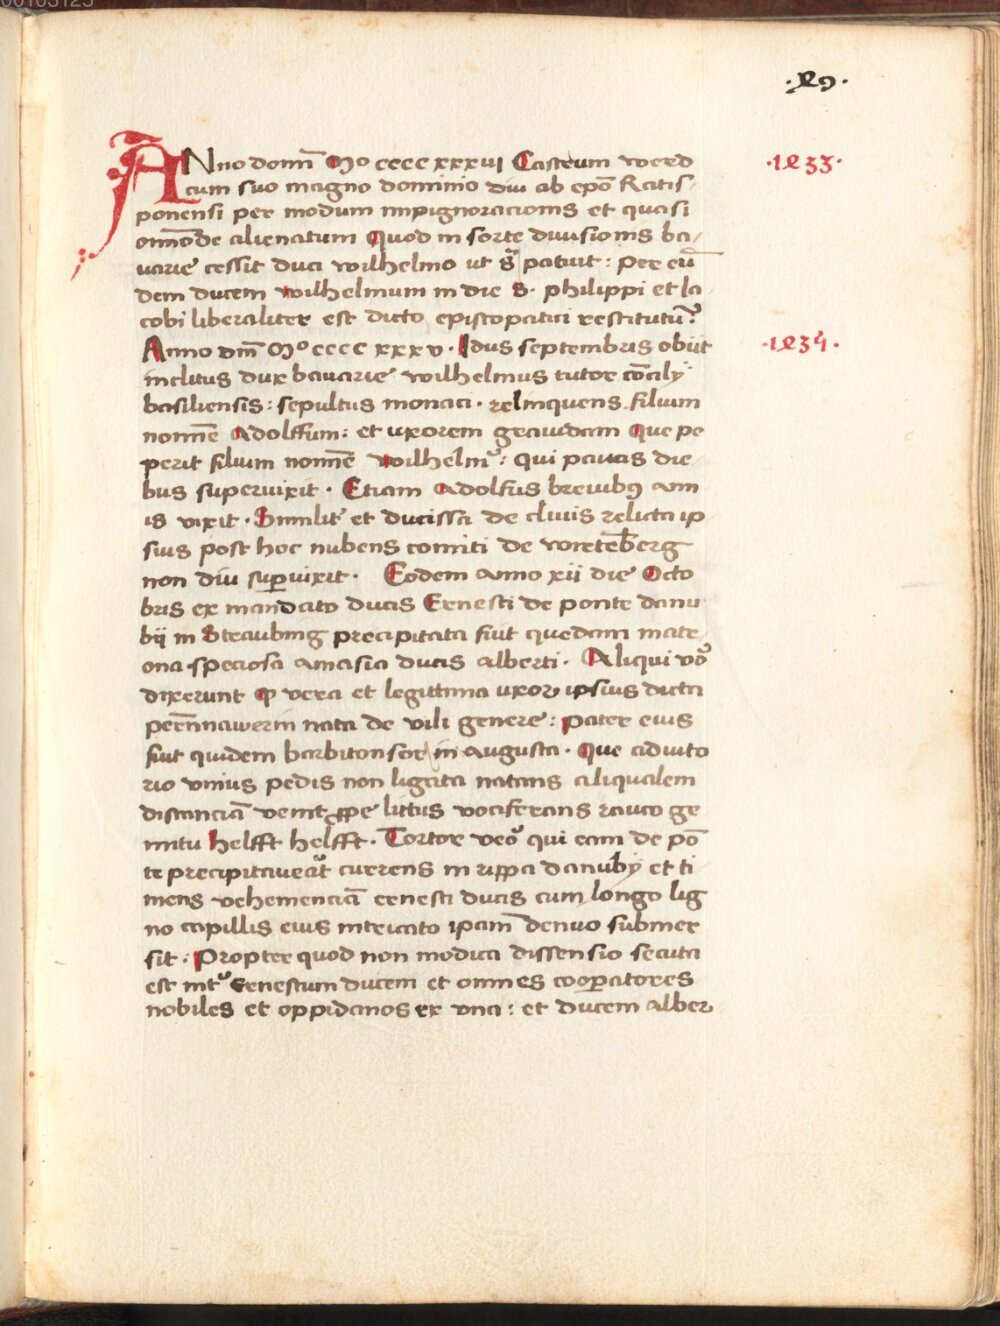 ·49·
ANno domī Mo cccc xxxvi Castrum werd
·1433·
cum suo magno dominio diu ab epō Ratis
ponensi per modum inpignoracionis et quasi
om̄ode alienatum Quod in sorte diuisionis ba
uarie cessit duci wilhelmo ut s̄ patuit: per eū
dem ducem wilhelmum in die S. philippi et Ia
cobi liberaliter est dicto episcopatui restitutū:
Anno dm̄ Mo cccc xxxv. Idus septembris obiit
·1434·
inclitus dux bavarie wilhelmus tutor cōcily
basiliensis: sepultus monaci. relinquens filium
nomīe Adolffum: et uxorem grauidam Que pe
perit filium nomīe wilhelm̄: qui paucis die
bus supervixit. Etiam Adolfus brevibꝯ ann
is vixit. Similit̄ et ducissa de cliuis relicta ip
sius post hoc nubens comiti de wretēberg
non diu suꝑvixit. Eodem anno xii die Octo
bris ex mandato ducis Ernesti de ponte danu
bij in Straubing precipitata fuit quedam matr
ona speciosa amasia ducis alberti. Aliqui vō
dixerunt ꝙ vera et legittima uxor ipsius dicta
pern̄nawerin nata de vili genere: pater eius
fuit quidem barbitonsor in augusta. Que adiuto
rio unius pedis non ligata natans aliqualem
distanciā venit ꝓpe littus vociferans rauco ge
mitu helfft helfft. Tortor veō qui eam de pō
te precipitaverāt currens in rippa danuby et ti
mens vehemenciā ernesti ducis cum longo lig
no capillis eius intricato ipam̄ denuo submer
sit. Propter quod non modica dissensio secuta
est int̄ Ernestum ducem et omnes cooꝑatores
nobiles et oppidanos ex una: et ducem alber